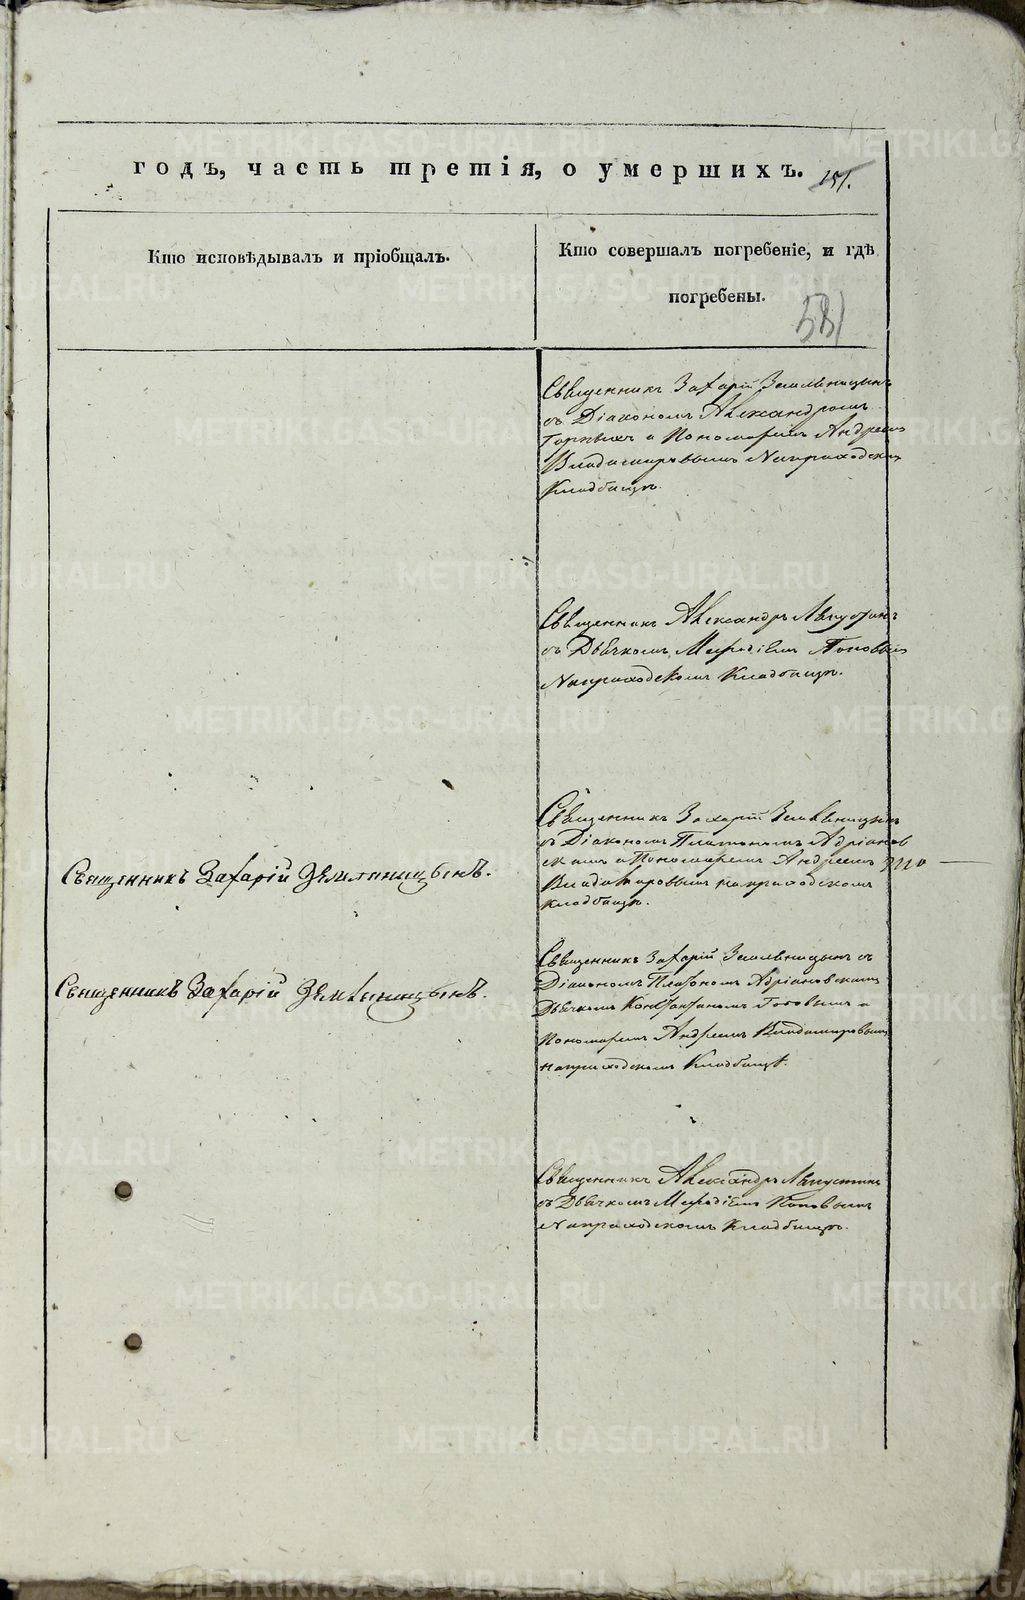 годъ, часть третія, о умершихъ. 151.
Кто исповѣдывалъ и пріобщалъ.
Кто совершалъ погребеніе, и гдѣ
погребены.
581
Священникъ Захарій Земляницынъ
съ Діакономъ Александромъ
и Пономаремъ Андреемъ
Владимировымъ На приходскомъ
Кладбищѣ.
Священникъ Александръ
съ Дьячкомъ Мефодіемъ Поповымъ
На приходскомъ Кладбищѣ.
Священникъ Захарій Земляницынъ
съ Діакономъ Платономъ Адріанов
скимъ и Пономаремъ Андреемъ
Владимировымъ на приходскомъ
кладбищѣ.
Священникъ Захарій Земляницынъ.
Священникъ Захарій Земляницынъ съ
Діакономъ Платономъ Адріановскимъ
Дьячкомъ Константиномъ Поповымъ и
Пономаремъ Андреемъ Владимировымъ
на приходскомъ Кладбищѣ.
Священникъ Захарій Земляницынъ.
Священникъ Александръ
съ Дьячкомъ Мефодіемъ Поповымъ
На приходскомъ Кладбищѣ.
METRIKI.GASO-URAL.RU